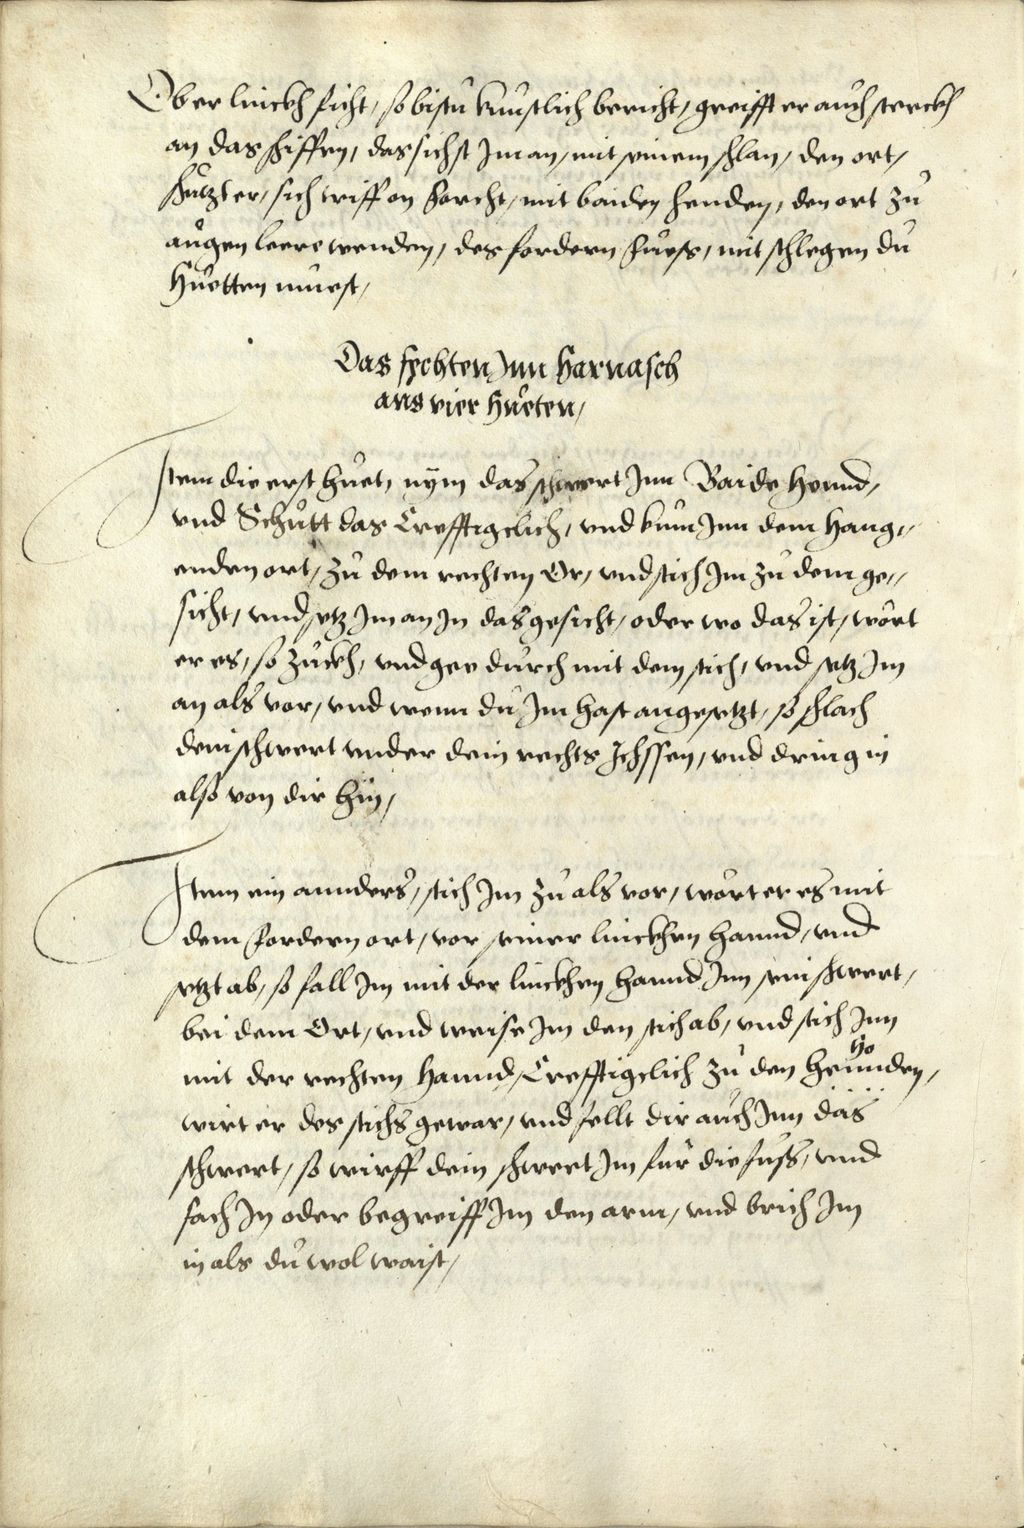 Ob er linckh ficht, so bistu kunstlich bericht, greifft er auch sterckh
an das schiffen, das sichst Jm an, mit seinem schlan, den ort,
schutzt er, sich triff on forcht, mit baiden henden, den ort zu
augen leere wenden, des fordern fuess, mit schlegen du
huetten muest,
Das fechten Jnn harnasch
aus vier hueten,
Jtem die erst huet, nÿm das schwert Jnn Baide hennd,
vnd Schutt das Crefftigclich, vnd kum Jnn dem hang„
enden ort, zu dem rechten Or, vnd stich Jm zu dem ge„
sicht, vnd setz Jm an Jn das gesicht, oder wo das ist, wört
er es, so zuckh, vnd gee durch mit dem stich, vnd setz Jm
an als vor, vnd wenn du Jm hast angesetzt, so schlach
dein schwert vnder dein rechts Jchssen, vnd dring in
also von dir hin,
Jtem ein annders, stich Jm zu als vor, wört er es mit
dem fordern ort, vor seiner linckhen hannd, vnd
setzt ab, so fall Jm mit der linckhen hannd Jnn sein schwert,
bei dem Ort, vnd weise Jm den stich ab, vnd stich Jnn
mit der rechten hannd, Crefftigclich zu den hennden,
ho
wirt er des stichs gewar, vnd fellt dir auch Jnn das
schwert, so wirff dein schwert Jm fur die fuss, vnd
fach Jn oder begreiff Jm den arm, vnd brich Jm
in als du wol waist,